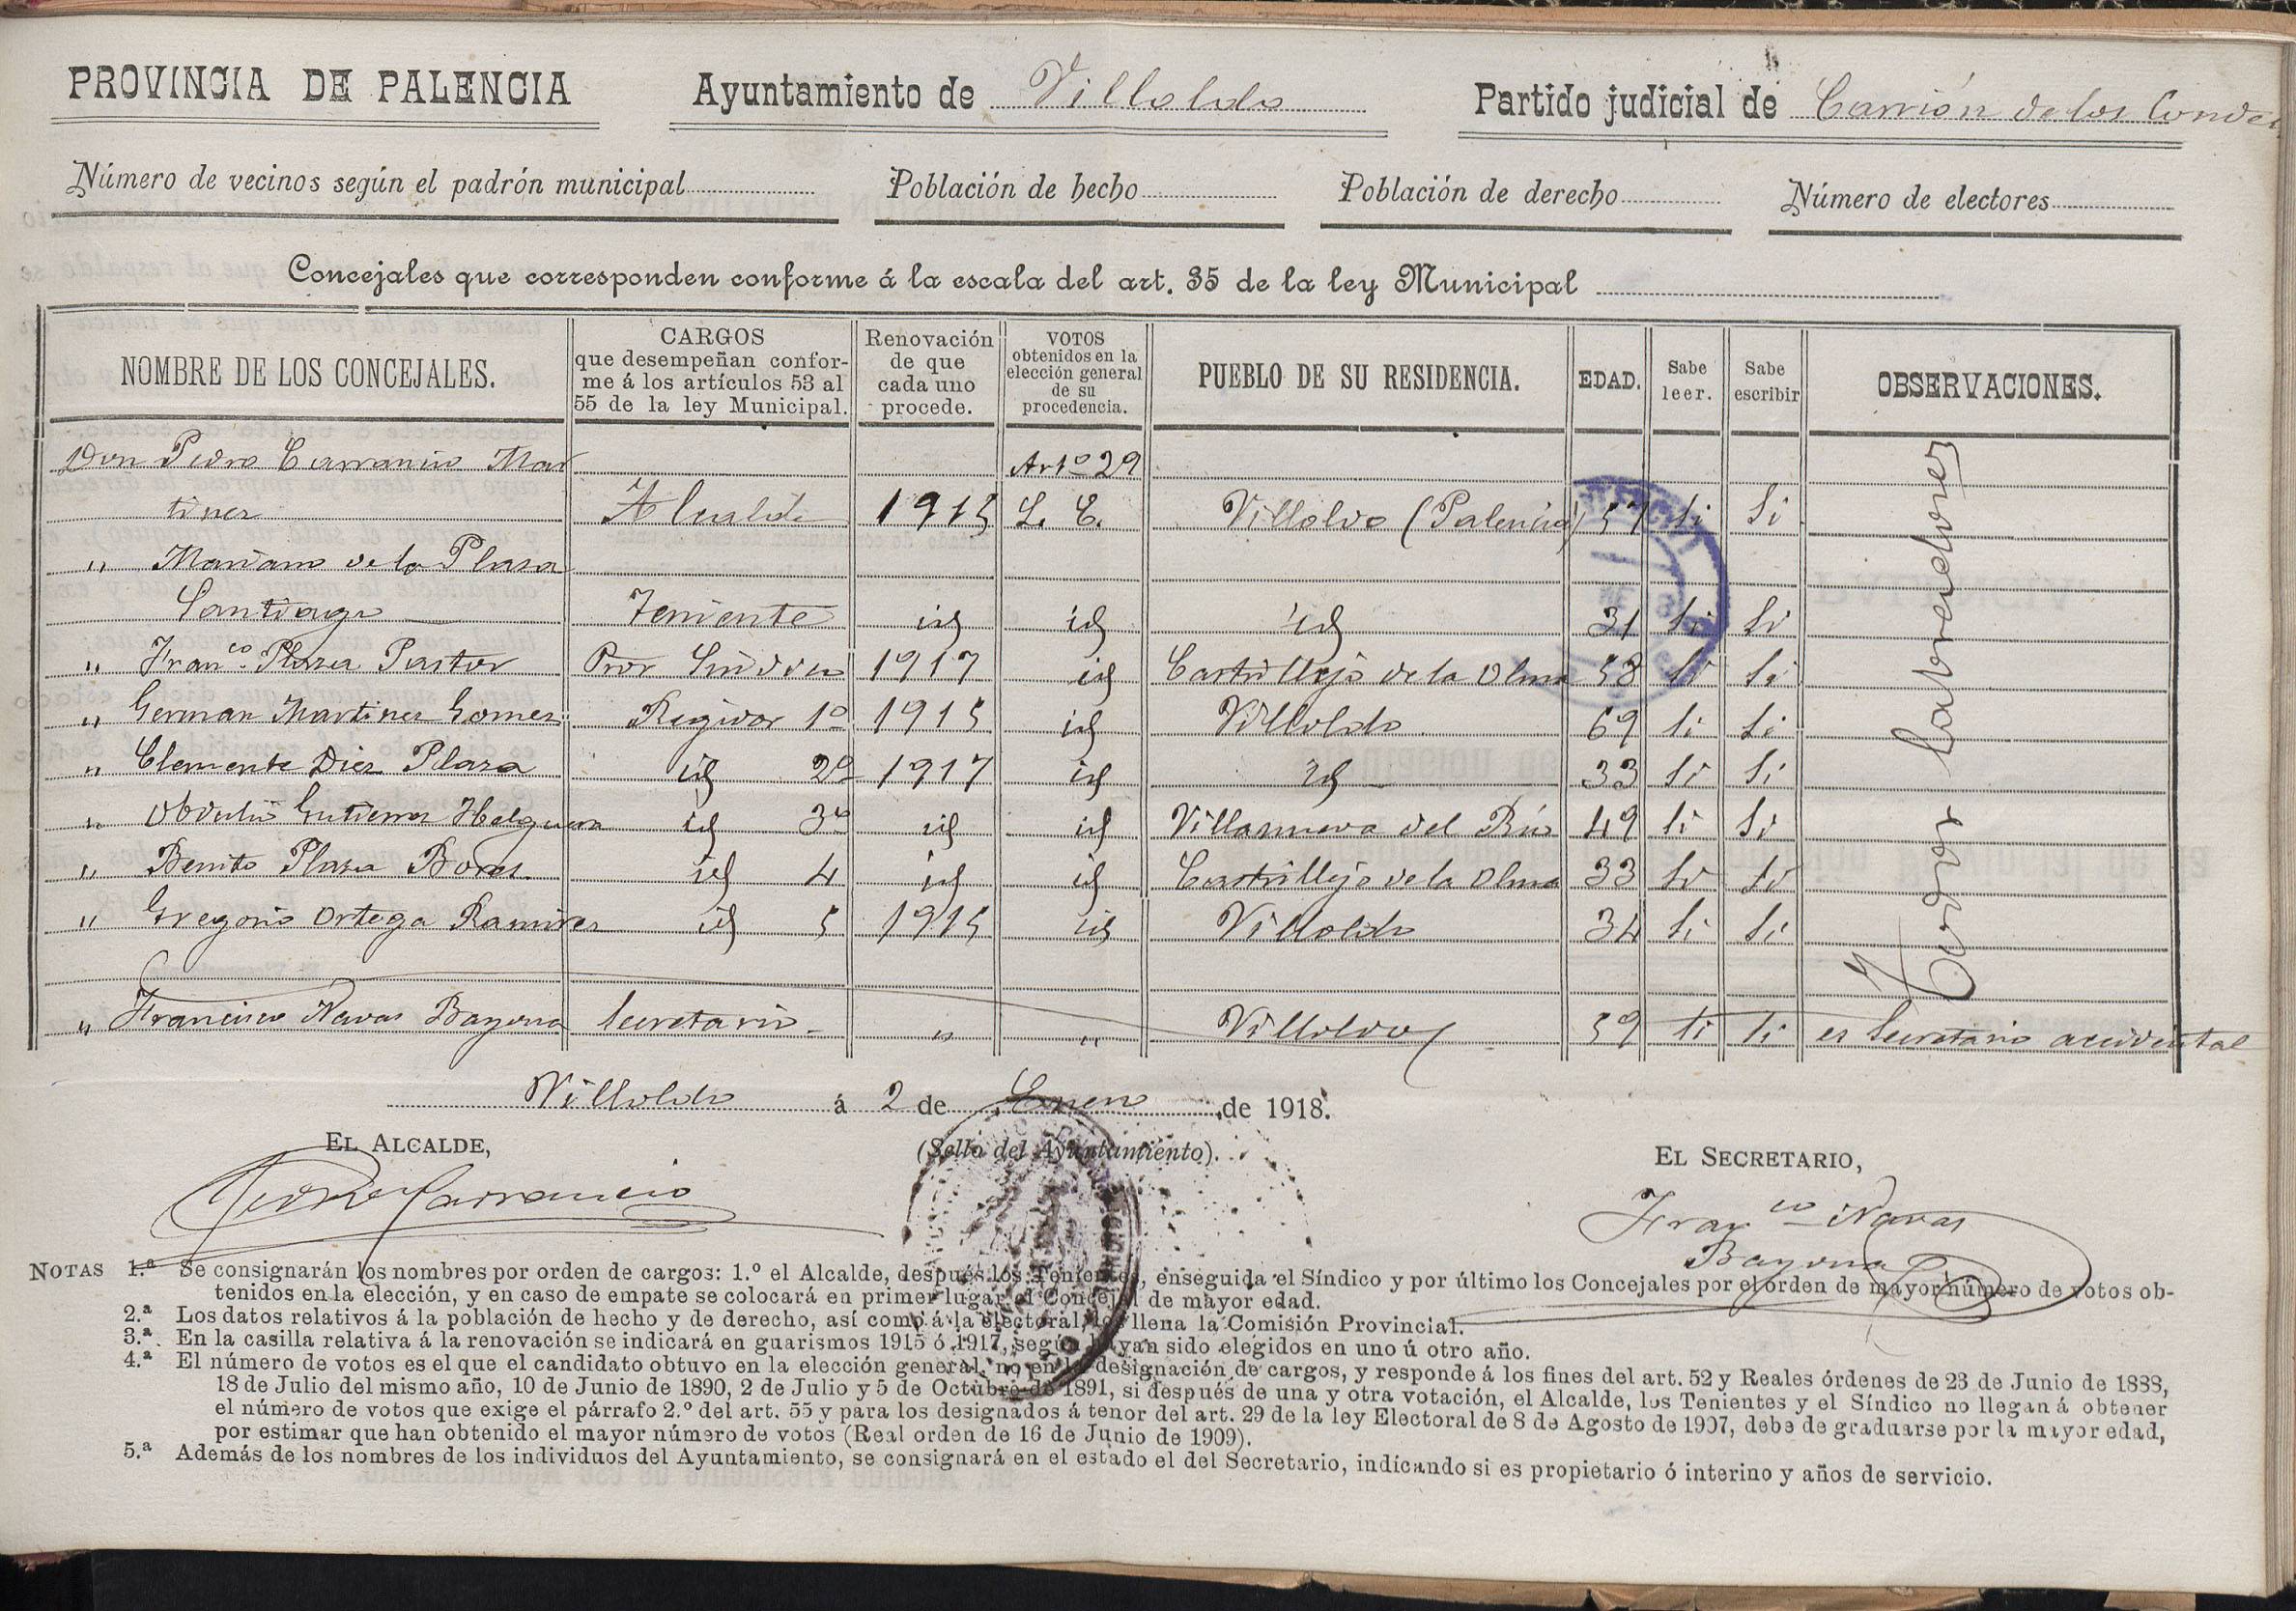 PROVINCIA DE PALENCIA Ayuntamiento de Villoldo Partido judicial de Carrión de los Condes
Número de vecinos según el padrón municipal Población de hecho Población de derecho Número de electores
Concejales que corresponden conforme á la escala del art. 35 de la ley Municipal
NOMBRE DE LOS CONCEJALES.
CARGOS
que desempeñan confor-
me á los artículos 53 al
55 de la ley Municipal.
Renovación
de que
cada uno
procede.
VOTOS
obtenidos en la
elección general
de su
procedencia.
PUEBLO DE SU RESIDENCIA.
EDAD.
Sabe
leer.
Sabe
escribir
OBSERVACIONES.
Don Pedro Carrancio Mar Arto 29
tinez Alcalde 1915 L. E. Villoldo (Palencia) 57 Si Si
" Mariano de la Plaza
Santiago Teniente id id id 31 Si Si
" Franco Plaza Pastor Pror Sindico 1917 id Castrillejo de la Olma 58 Si Si
" German Martinez Gomez Regidor 1º 1915 id Villoldo 69 Si Si
" Clemente Diez Plaza id 2º 1917 id id 33 Si Si
" Obdulio Gutierrez Helguera id 3º id id Villanueva del Rio 49 Si Si
" Benito Plaza id 4 id id Castrillejo de la Olma 33 Si Si
" Gregorio Ortega Ramirez id 5 1915 id Villoldo 34 Si Si
Todos Labradores
" Francisco Navas Bayona Secretario " " Villoldo 59 Si Si es Secretario accidental
Villoldo á 2 de Enero de 1918.
EL ALCALDE, (Sello del Ayuntamiento). EL SECRETARIO,
Pedro Carrancio
Franco Navas
Bayona
NOTAS 1.ª Se consignarán los nombres por orden de cargos: 1.º el Alcalde, después los Tenientes, enseguida el Síndico y por último los Concejales por el orden de mayor número de votos ob-
tenidos en la elección, y en caso de empate se colocará en primer lugar el Concejal de mayor edad.
2.ª Los datos relativos á la población de hecho y de derecho, así como á la electoral, los llena la Comisión Provincial.
3.ª En la casilla relativa á la renovación se indicará en guarismos 1915 ó 1917, según hayan sido elegidos en uno ú otro año.
4.ª El número de votos es el que el candidato obtuvo en la elección general, no en la designación de cargos, y responde á los fines del art. 52 y Reales órdenes de 23 de Junio de 1888,
18 de Julio del mismo año, 10 de Junio de 1890, 2 de Julio y 5 de Octubre de 1891, si después de una y otra votación, el Alcalde, los Tenientes y el Síndico no llegan á obtener
el número de votos que exige el párrafo 2.º del art. 55 y para los designados á tenor del art. 29 de la ley Electoral de 8 de Agosto de 1907, debe de graduarse por la mayor edad,
por estimar que han obtenido el mayor número de votos (Real orden de 16 de Junio de 1909).
5.ª Además de los nombres de los individuos del Ayuntamiento, se consignará en el estado el del Secretario, indicando si es propietario ó interino y años de servicio.